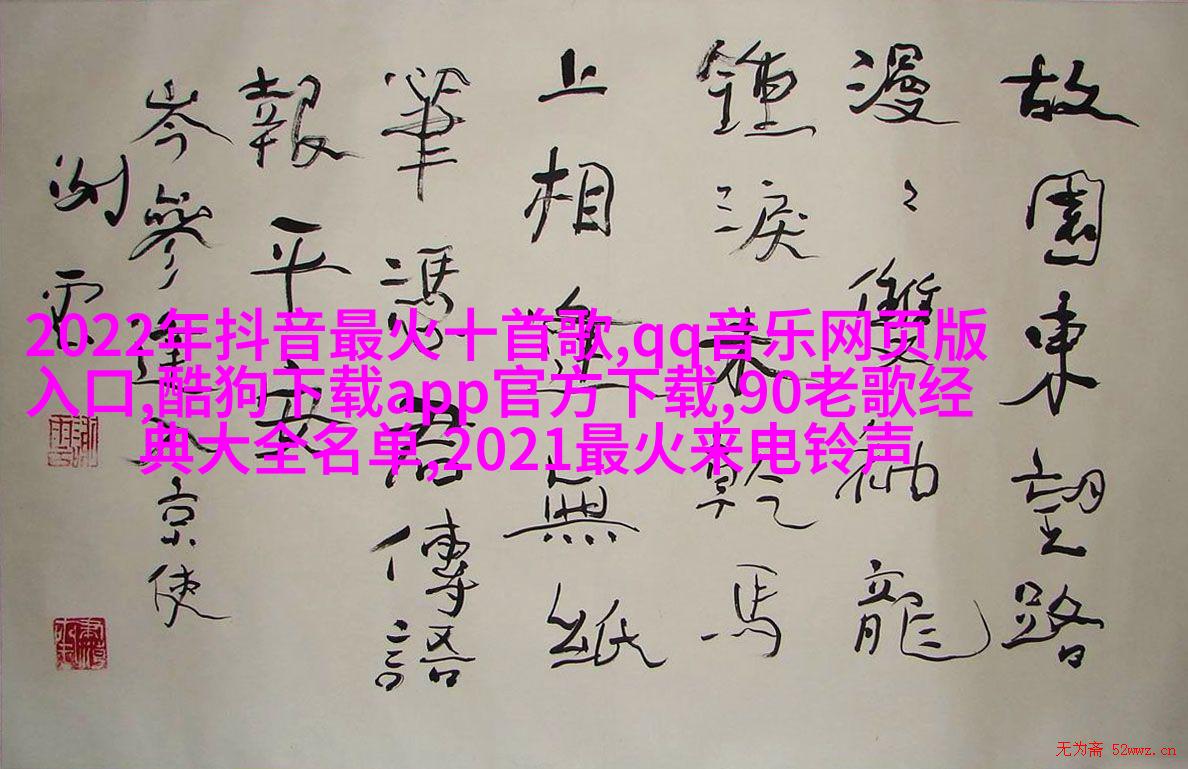 故園東望路
漫〻雙袖龍
鍾淚未乾馬
上相逢無紙
筆馮君傳語
報平安
岑參逢入京使
2022年抖音最火十首歌,qq音乐网页版
入口,酷狗下载app官方下载,90老歌经
典大全名单,2021最火来电铃声
无为斋 52wwz.cn